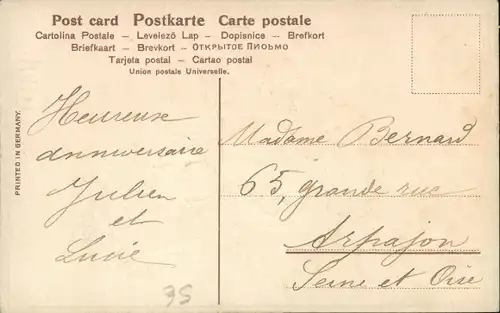 Post card Postkarte Carte postale
Cartolina Postale – Levelező Lap – Dopisnice – Brefkort
Briefkaart – Brevkort – ОТКРЫТОЕ ПИСЬМО
Tarjeta postal – Cartao postal
Union postale Universelle.
PRINTED IN GERMANY.
Heureuse
anniversaire
Julien
et
Lucie
Madame Bernard
65, grande rue
Arpajon
Seine et Oise
35